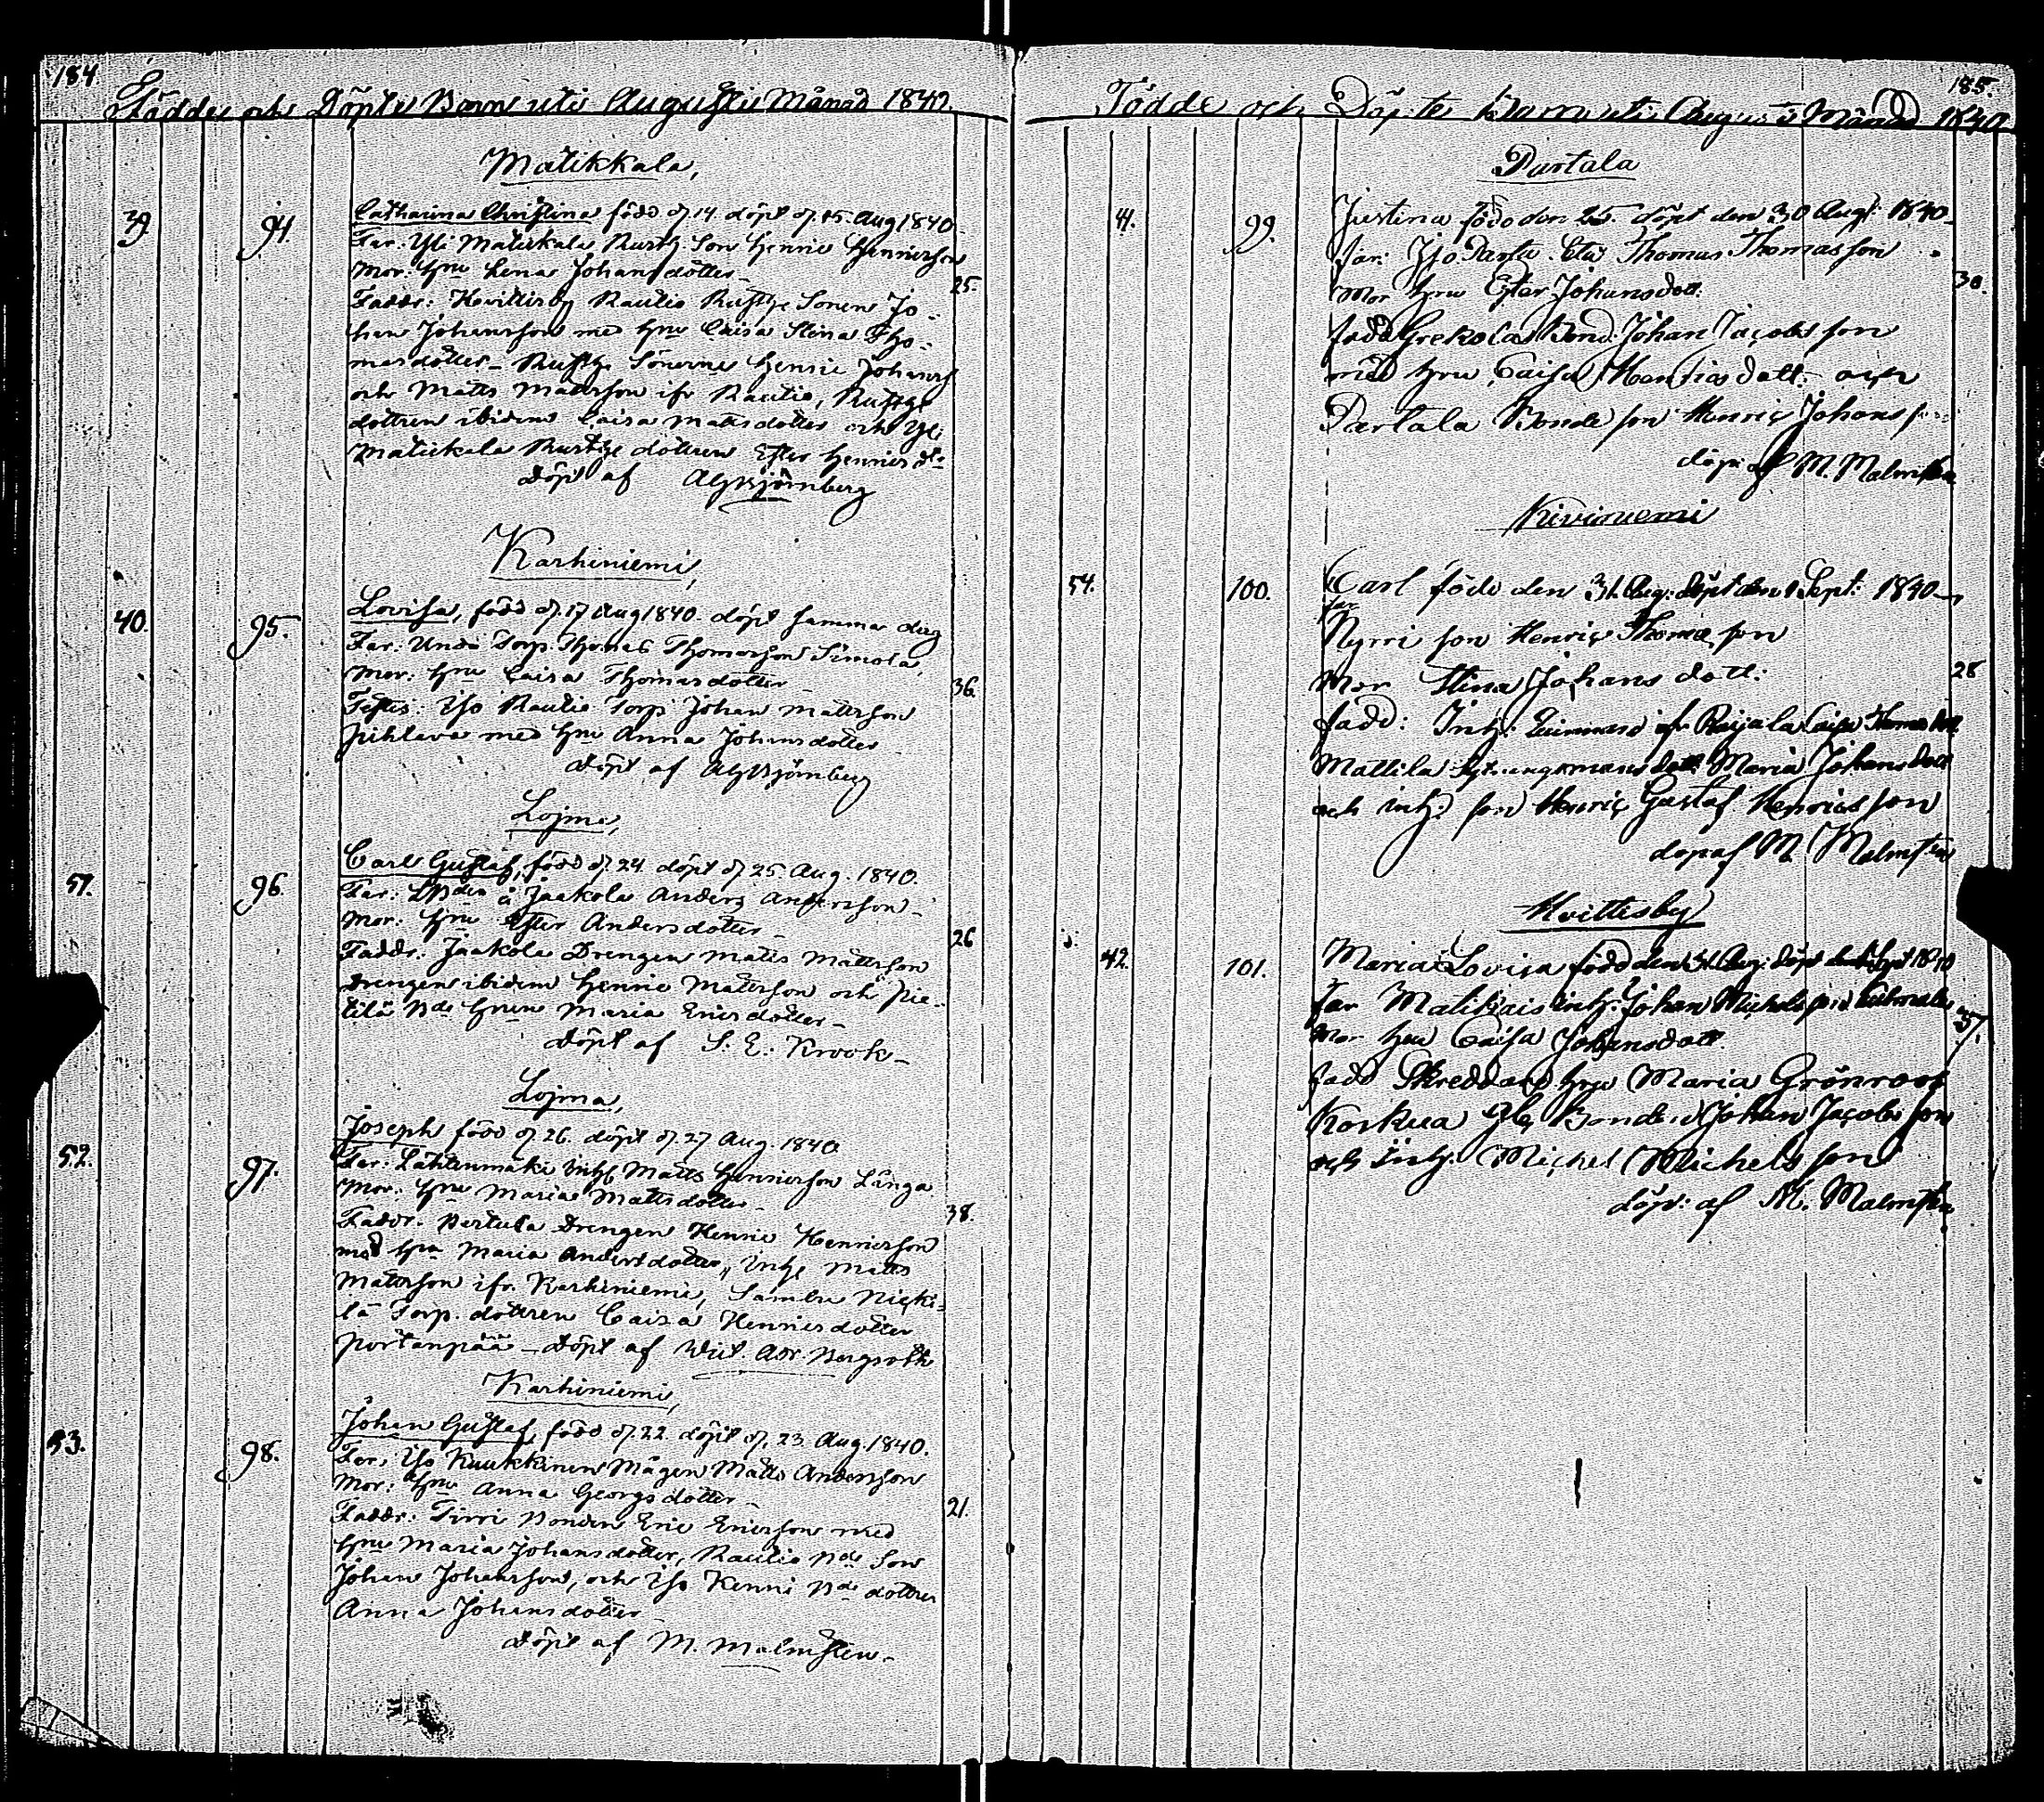 184
Födde och Döpte Barn uti Augusti Månad 1840.
Matikkala,
39
94.
Catharina Christina född d. 14. döpt d. 15. Aug 1840
Far: Yli Matikkala Rusth. Son Henric Henricsson
Mor: Hru Lena Johansdotter
25.
Faddr: Kvittisby Rautio Rusthe Sonen Jo-
han Johansson med Hru Caisa Stina Tho-
masdotter – Rusthe Sönerne Henric Johanss
och Matts Mattsson ifr Rautio, Rusthe
dottren ibidem Caisa Mattsdotter och Yli
Matikkala Rusthe dottren Ester Henricsdr
Döpt af AG Björnberg
Karhiniemi,
40.
95.
Lovisa, född d. 17 Aug 1840. döpt samma dag
Far: Torp. Thomas Thomasson Simola
Mor: Hru Caisa Thomasdotter
36.
Testes: Iso Rautio Torp Johan Mattsson
Pihlava med Hru Anna Johansdotter
Döpt af AG Björnberg
Lojma,
51.
96.
Carl Gustaf, född d. 24. döpt d. 25. Aug. 1840.
Far: å Jaakola Anders Andersson
Mor: Hru Ester Andersdotter
26
Faddr: Jaakola Drengen Matts Mattsson
Drengen ibidem Henric Mattsson och Pie-
tilä Bde Hrun Maria Ericsdotter
Döpt af S. E. Krook
Lojma,
52.
97.
Joseph född d. 26. döpt d. 27 Aug. 1840
Far: Lähtenmäki Inh. Matts Henricsson Långa
Mor: Hru Maria Mattsdotter
38.
Faddr: Pertula Drengen Henric Henricsson
med Hru Maria Andersdotter, Inhe Matts
Mattsson ifr. Karhiniemi, Sambu
lä Torp. dottren Caisa Henricsdotter
Portanpää – Döpt af Vict. Adr. Bergroth
Karhiniemi,
53.
98.
Johan Gustaf, född d. 22. döpt d. 23. Aug. 1840.
Far: Iso Kuukkinen Mågen Matts Andersson
Mor: Hru Anna Georgsdotter
21.
Faddr: Tirri Bonden Eric Ericsson med
Hru Maria Johansdotter, Rautio Bde Son
Johan Johansson, och Iso Kenni Bde dottren
Anna Johansdotter
Döpt af M. Malmsten
185.
Födde och Döpte Barn uti Augusti Månad 1840
Dartala
41.
99.
Justina född den 25. döpt den 30 Augt: 1840
far: Thomas Thomasson
30.
Mor hru Ester Johansdott.
fadd Grekola Bond. Johan Jacobsson
med hru Caisa Henricsdott. och
Dartala Bonde son Henric Johanss
döpt af M. Malmsten
Kiviniemi
54.
100.
Carl född den 31. Aug: döpt den 1 Sept: 1840
far
Nyrri son Henric Thomasson
Mor Stina Johansdott:
28
fadd: Inh: af Raijala Caisa Thomasdott
Mattila dott Maria Johansdott
och inh: son Henric Gustaf Henricsson
döp af M. Malmsten
Kvittisby
42.
101.
Maria Lovisa född den 31 Aug: döpt den Sept 1840
far inh: Johan Michelsson
37.
Mor hru Caisa Johansdott.
fadd Skreddare hru Maria Grönroos
Koskua Yli Bonde Johan Jacobsson
och Inh: Michel Michelsson
döp: af M. Malmsten